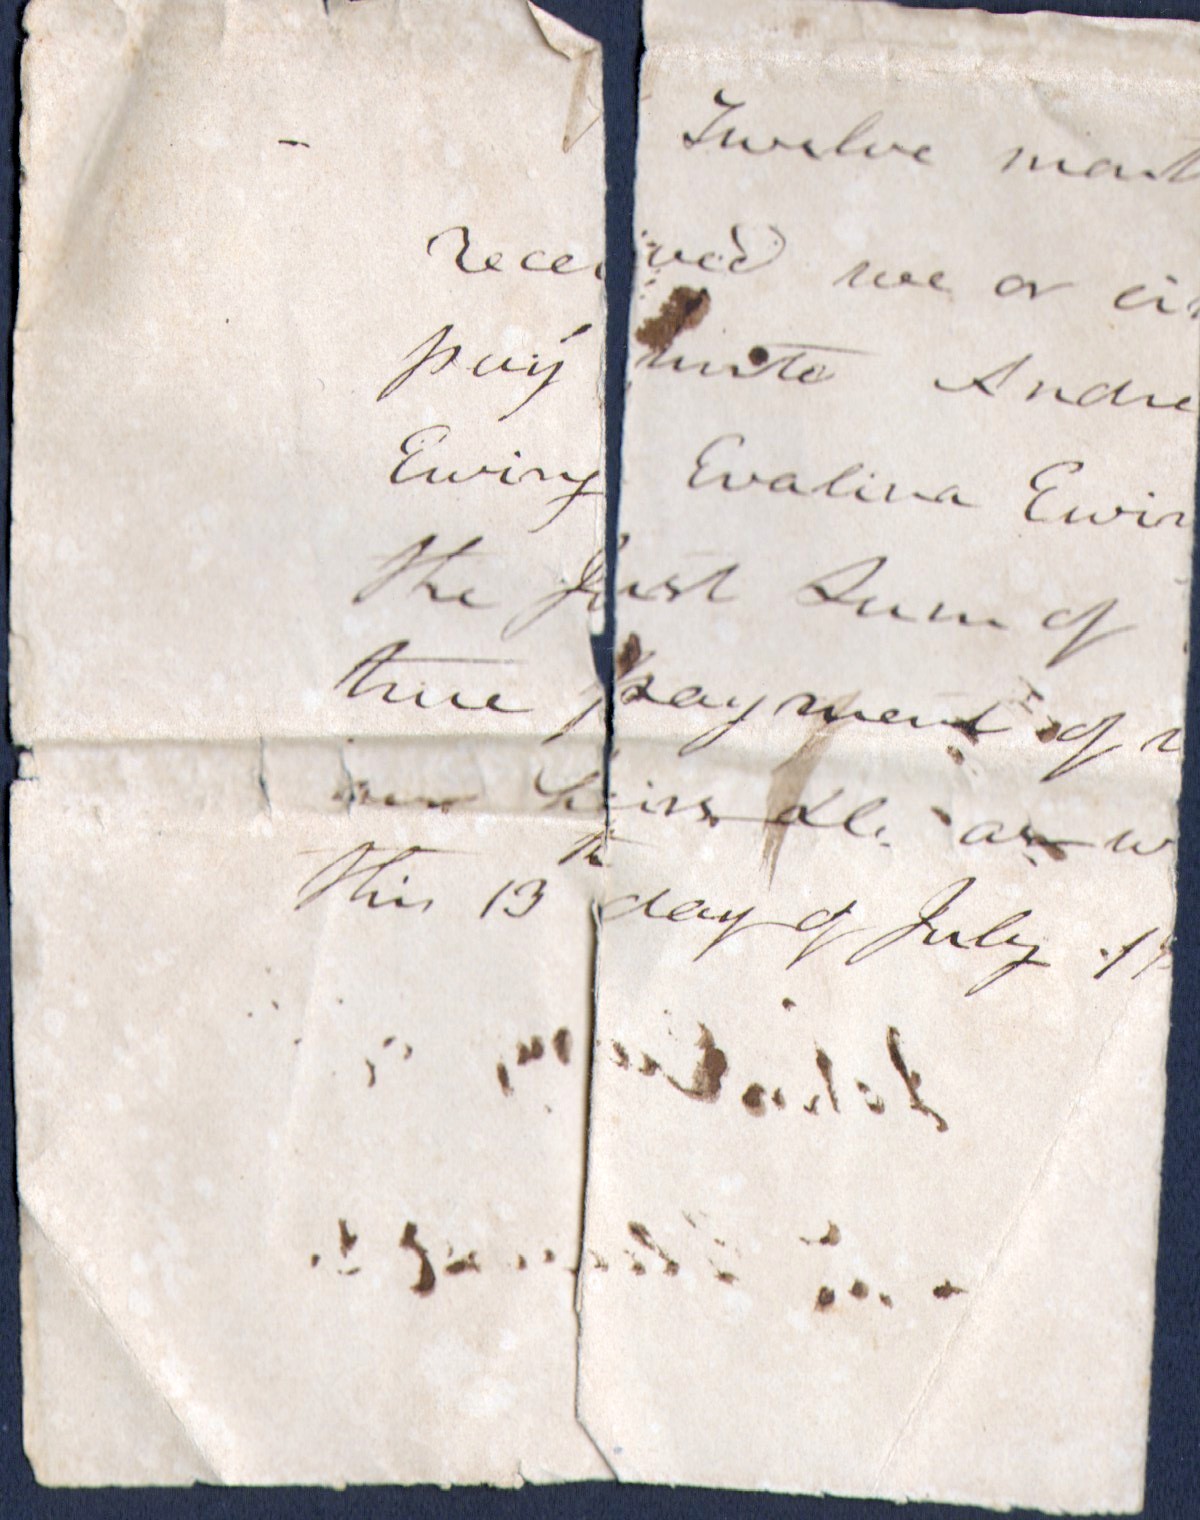 Twelve mont
received we or ei
pay unto Andre
Ewing Evalina Ewin
the Just Sum of
true payment of
our heirs &c. as w
this 13th day of July 18